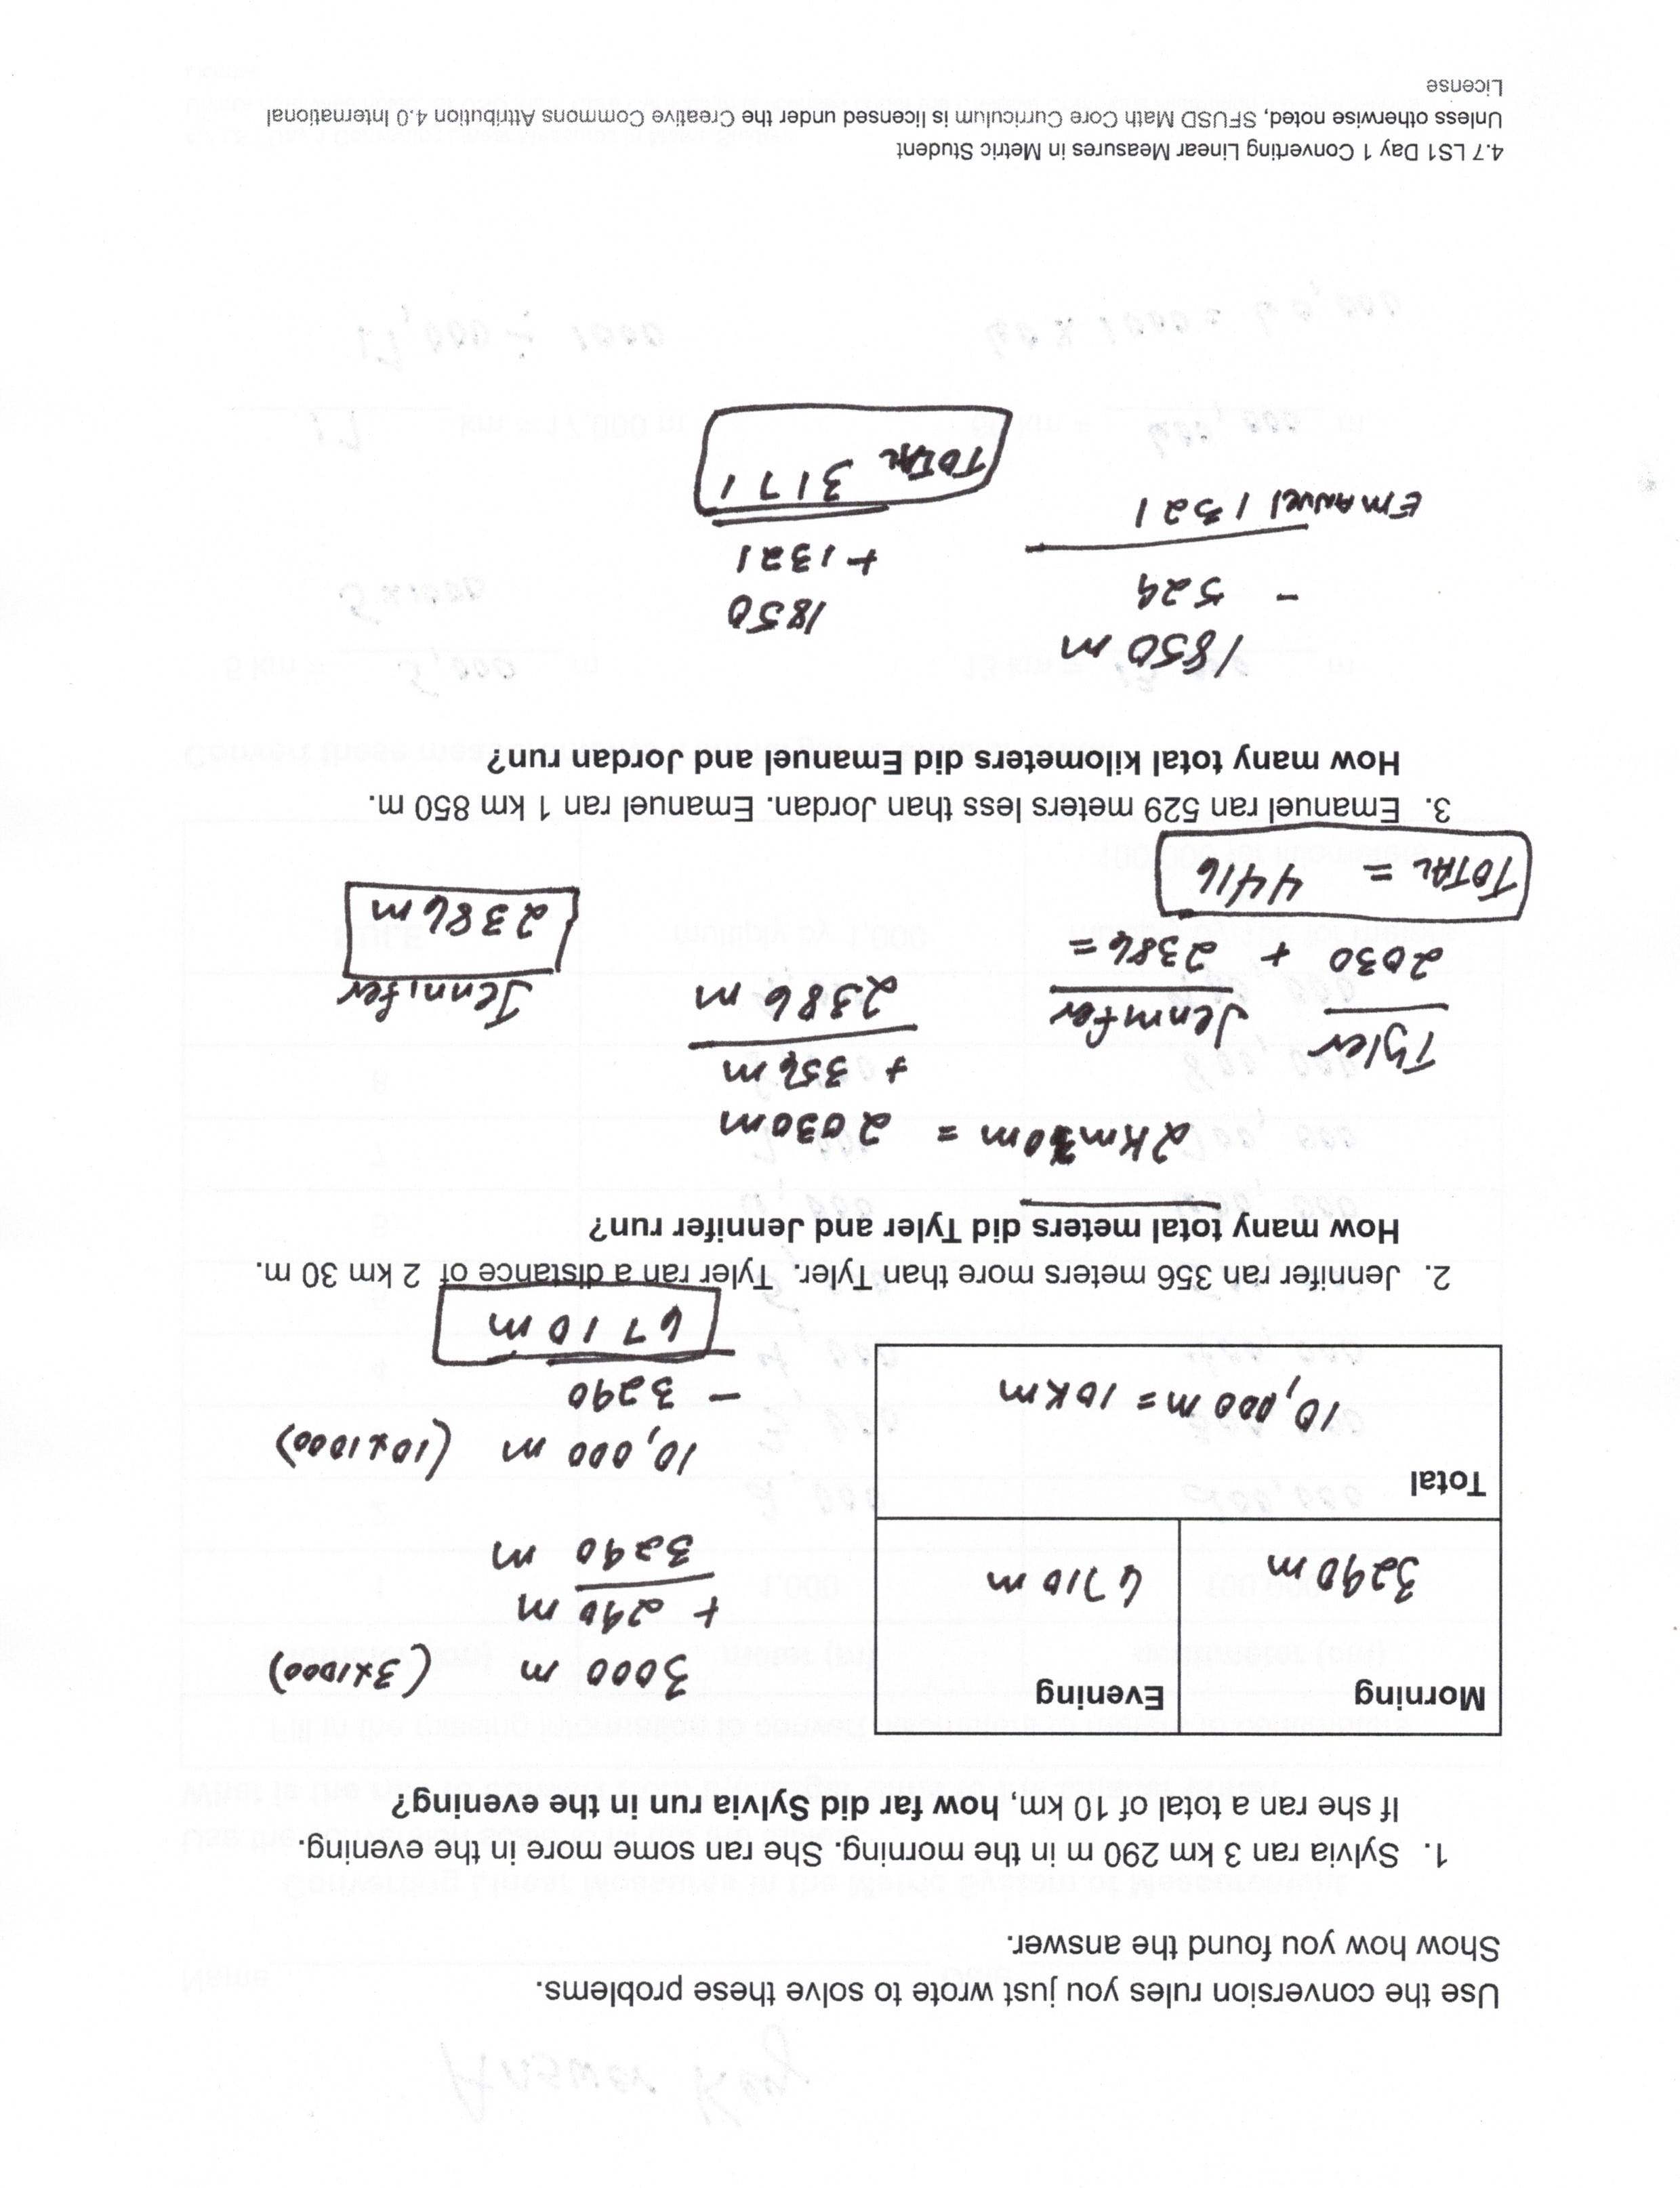 Use the conversion rules you just wrote to solve these problems.
Show how you found the answer.
1. Sylvia ran 3 km 290 m in the morning. She ran some more in the evening.
If she ran a total of 10 km, how far did Sylvia run in the evening?
Morning
Evening
3290 m
6710 m
Total
10,000 m = 10 km
3000 m (3x1000)
+ 290 m
3290 m
10,000 m (10x1000)
- 3290
6710 m
2. Jennifer ran 356 meters more than Tyler. Tyler ran a distance of 2 km 30 m.
How many total meters did Tyler and Jennifer run?
2km30m = 2030m
+ 356 m
2386 m
Jennifer
2386 m
Tyler Jennifer
2030 + 2386 =
TOTAL = 4416
3. Emanuel ran 529 meters less than Jordan. Emanuel ran 1 km 850 m.
How many total kilometers did Emanuel and Jordan run?
1850 m
- 529
Emanuel 1321
1850
+1321
TOTAL 3171
4.7 LS1 Day 1 Converting Linear Measures in Metric Student
Unless otherwise noted, SFUSD Math Core Curriculum is licensed under the Creative Commons Attribution 4.0 International
License